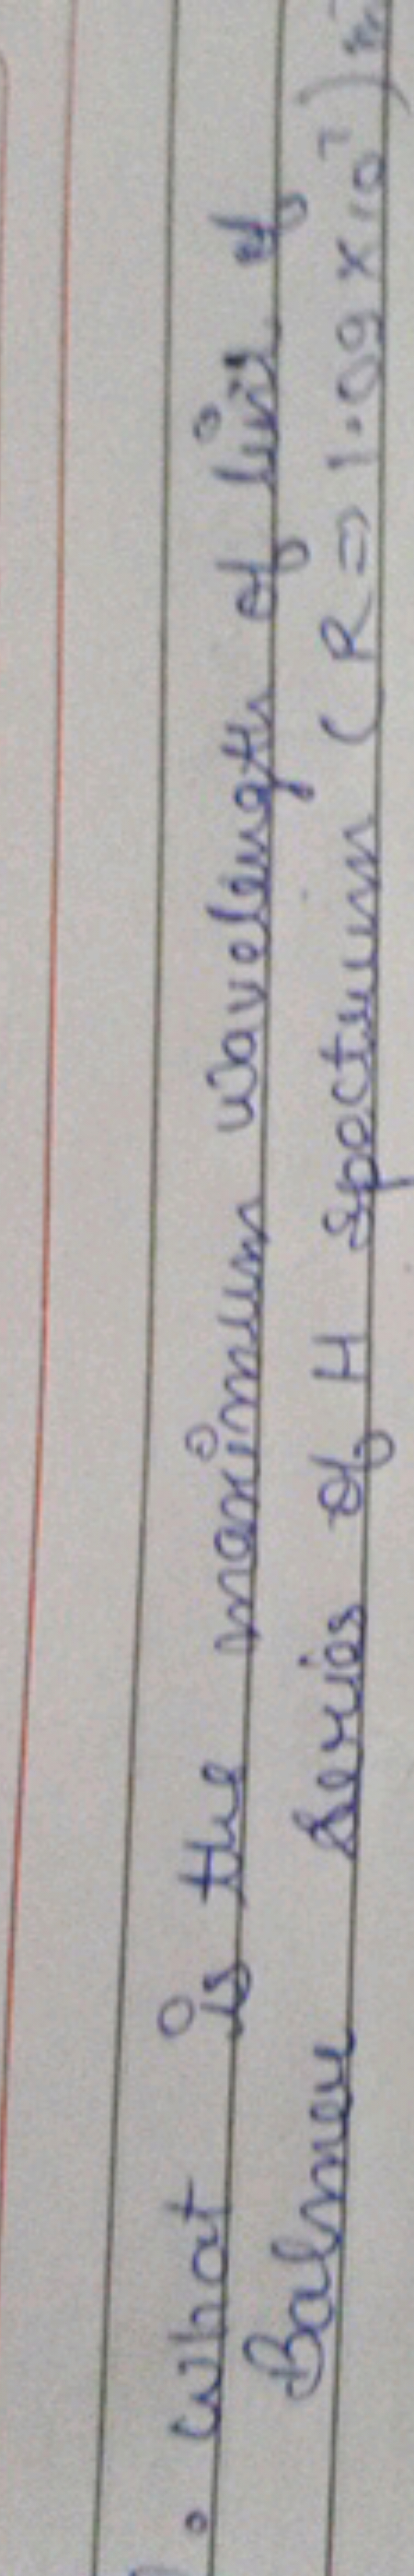 . What is the maximum wavelength of line of
Balmer series of H spectrum ( R = 1.09 × 10⁷ ) m